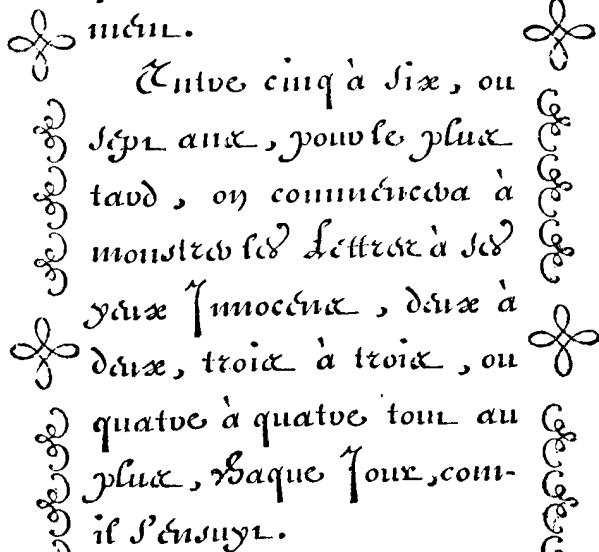 ment.
Entre cinq à six, ou
sept ans, pour le plus
tard, on commencera à
monstrer les Lettres à ses
yeux Innocens, deux à
deux, trois à trois, ou
quatre à quatre tout au
plus, chaque Jour, com-
il s'ensuyt.